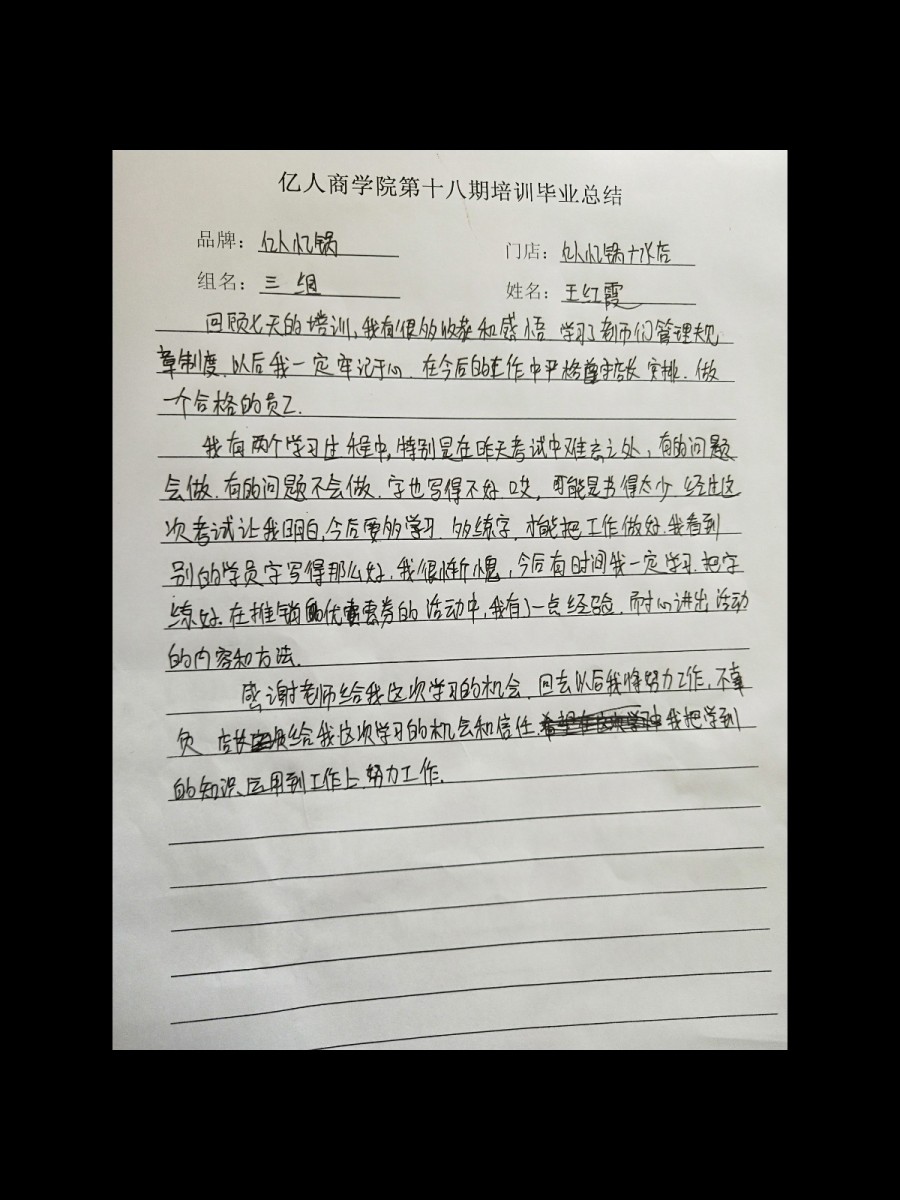 亿人商学院第十八期培训毕业总结
品牌：亿人忆锅
门店：亿人忆锅十水店
组名：三组
姓名：王红霞
回顾七天的培训，我有很多收获和感悟.学习了制市们管理规
章制度.以后我一定牢记于心.在今后的工作中严格遵守店长安排.做
一个合格的员工.
我有两个学习过程中,特别是在昨天考试中难忘之处，有的问题
会做.有的问题不会做.字也写得不好哎，可能是书得太少.经过这
次考试让我明白,今后要多学习.多练字.才能把工作做好.我看到
别的学员字写得那么好.我很惭愧，今后有时间我一定学习.把字
练好.在推销优惠券的活动中,我有了一点经验.耐心讲出活动
的内容和方法.
感谢老师给我这次学习的机会.回去以后我将努力工作,不辜
负店长给我这次学习的机会和信任.我把学到
的知识、运用到工作上.努力工作.